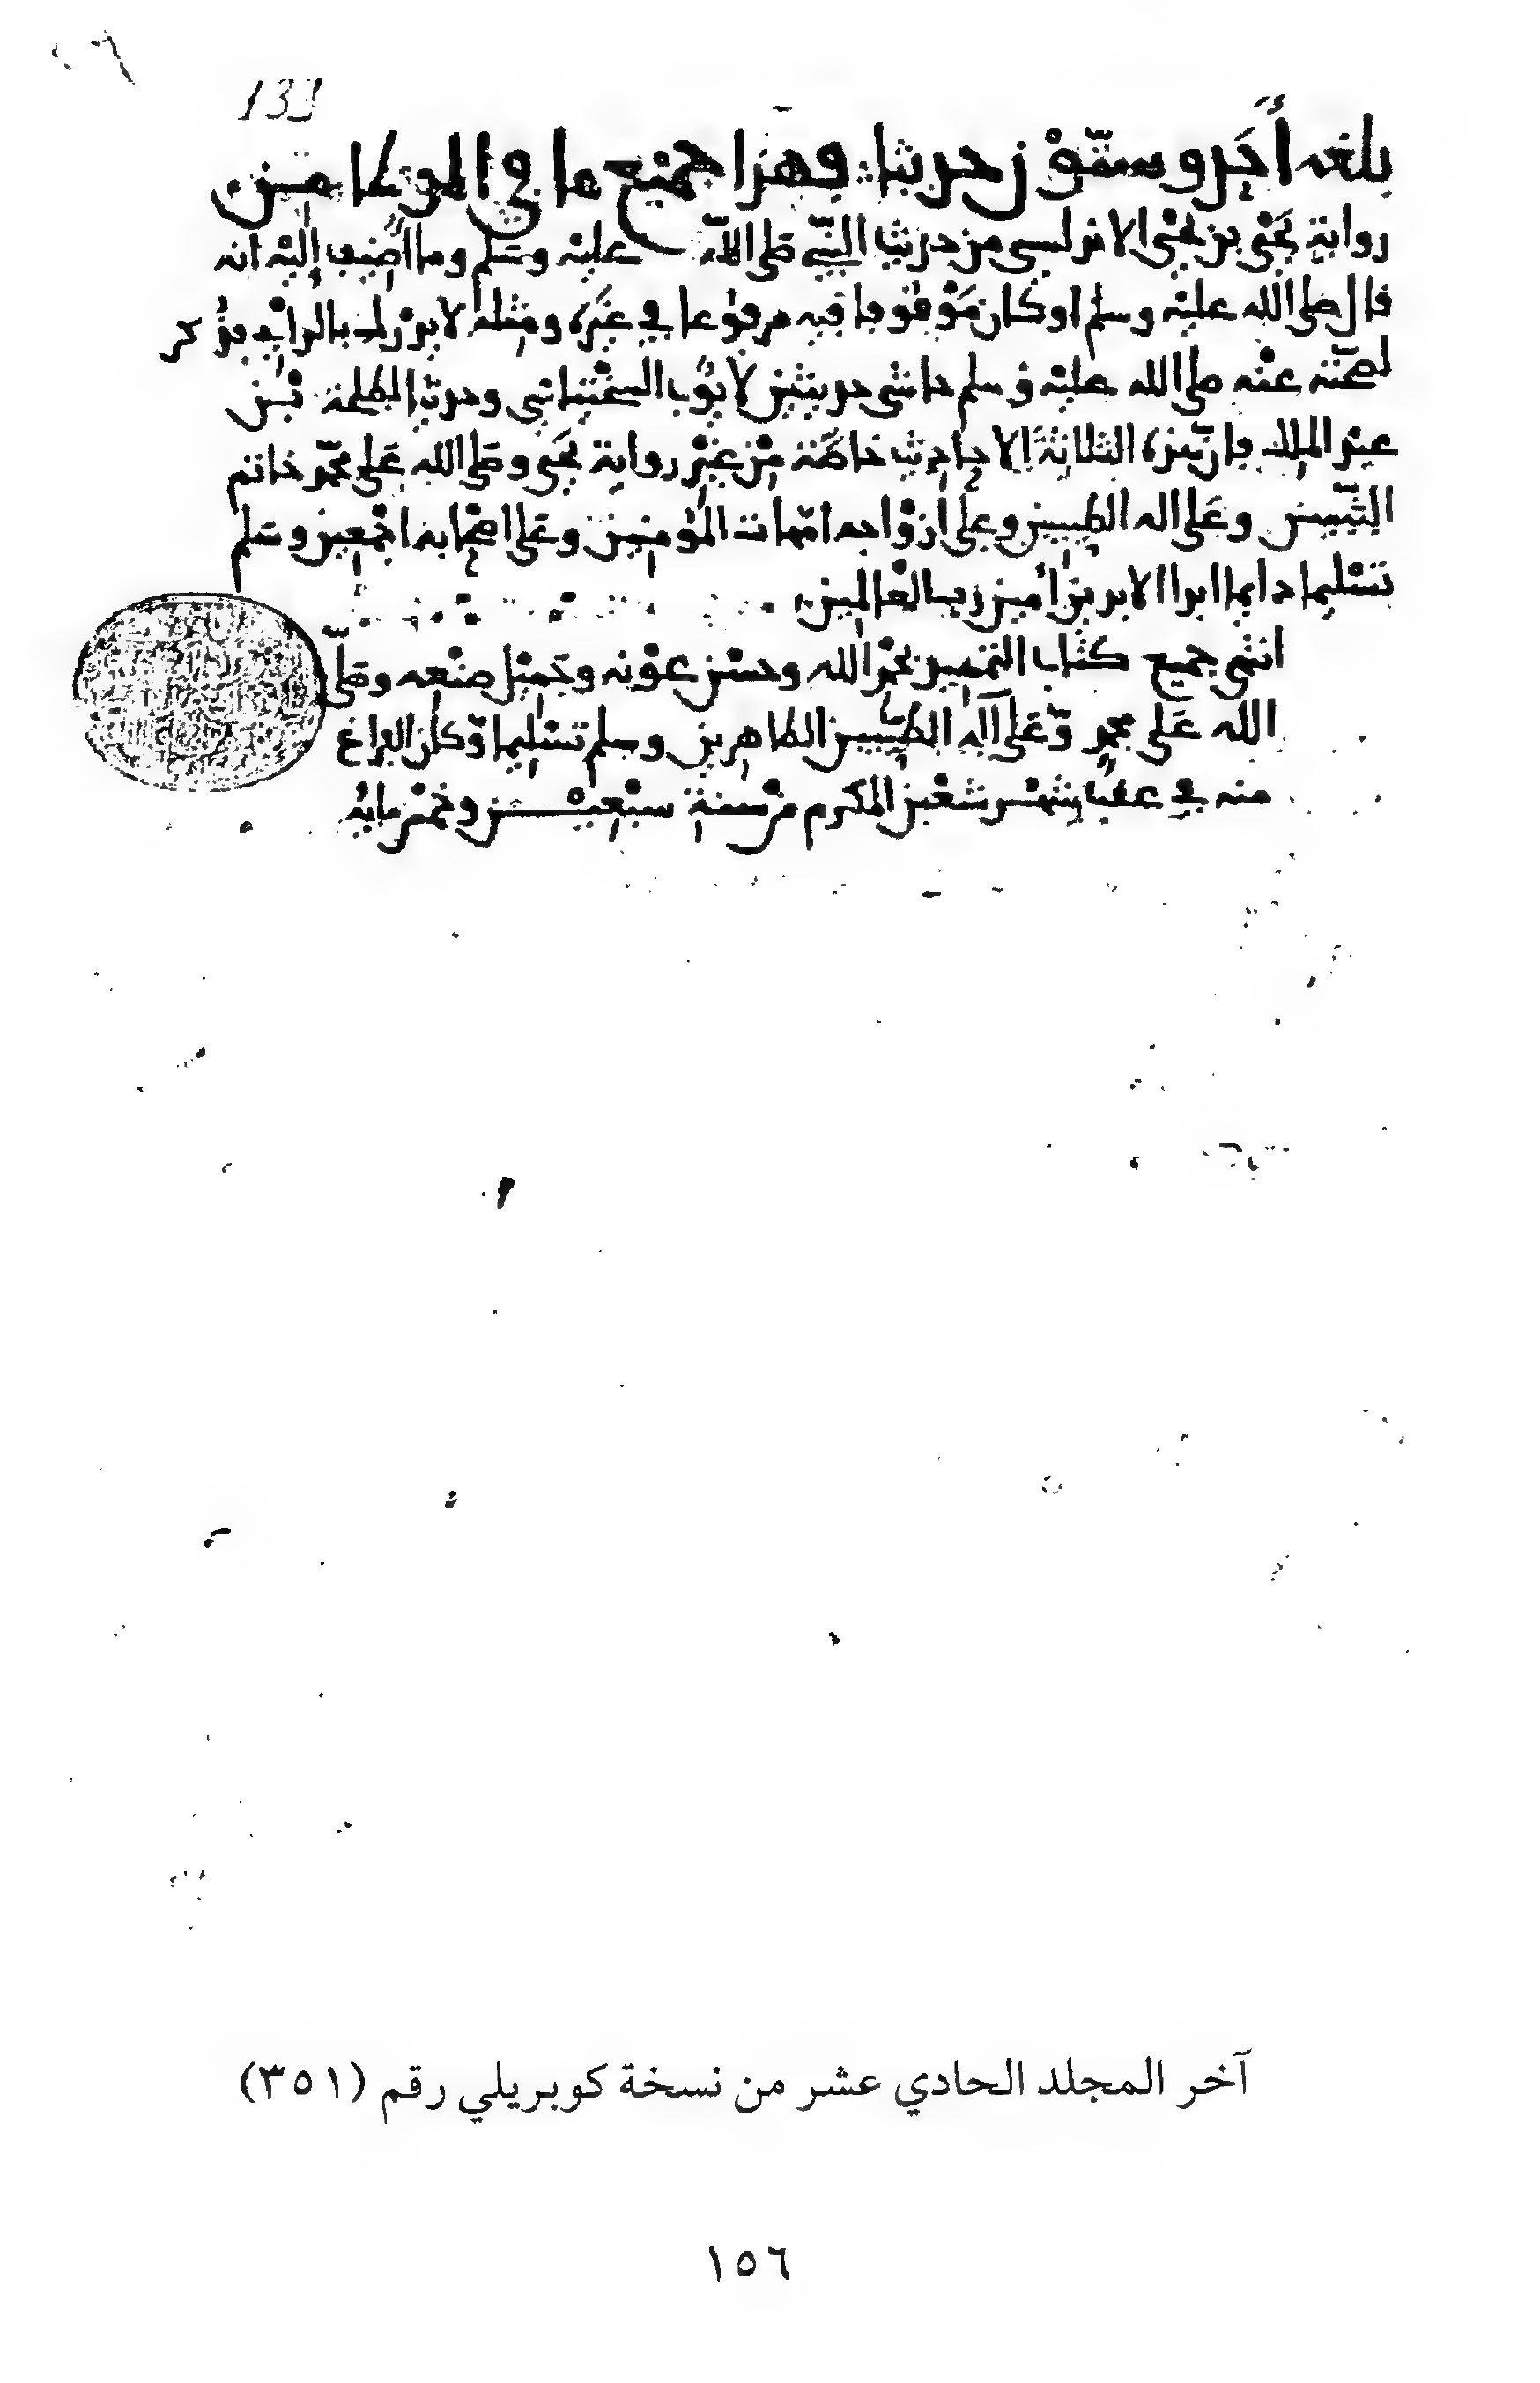 133
بلغه أحد وستون حديثا فهذا جميع ما في الموطا من
رواية يحيى بن يحيى الاندلسي من حديث النبي صلى الله عليه وسلم وما اضيف إليه انه
قال صلى الله عليه وسلم او كان موقوفا فيه مرفوعا في غيره ومثله لا يدرك بالراي فذكر
لصحته عنه صلى الله عليه وسلم حاشى حديثين لايوب السختياني وحديثا لطلحة بن
عبد الملك فان هذه الثلاثة الاحاديث خاصة من غير رواية يحيى وصلى الله على محمد خاتم
النبيين وعلى اله الطيبين وعلى ازواجه امهات المؤمنين وعلى اصحابه اجمعين وسلم
تسليما دايما ابدا الابدين أمين رب العالمين
انتهى جميع كتاب التمهيد بحمد الله وحسن عونه وجميل صنعه وصلى
الله على محمد وعلى آله الطيبين الطاهرين وسلم تسليما وكان الفراغ
منه في عقب شهر شعبن المكرم من سنة سبعين وخمس ماية
آخر المجلد الحادي عشر من نسخة كوبريلي رقم (٣٥١)
١٥٦